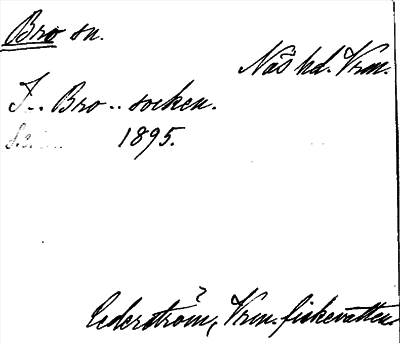 Bro sn.
Näs hd. Vrm.
I .. Bro .. socken.
1895.
Cederström, Vrm. fiskevatten